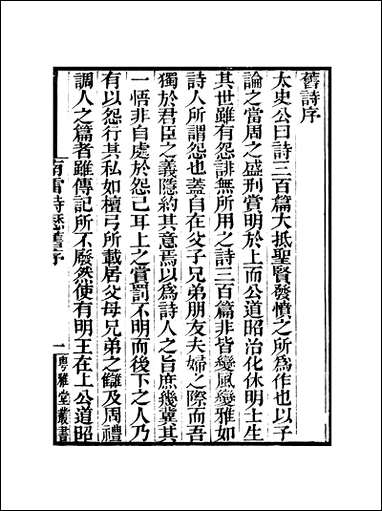 舊詩序
太史公曰詩三百篇大抵聖賢發憤之所爲作也以予
論之當周之盛刑賞明於上而公道昭治化休明士生
其世雖有怨誹無所用之詩三百篇非皆變風變雅如
詩人所謂怨也蓋自在父子兄弟朋友夫婦之際而吾
獨於君臣之義隱約其意焉以爲詩人之旨庶幾冀其
一悟非自處於怨已耳上之賞罰不明而後下之人乃
有以怨行其私如檀弓所載居父母兄弟之讎及周禮
調人之篇者雖傳記所不廢然使有明王在上公道昭
南雷詩歷舊序
一
粵雅堂叢書